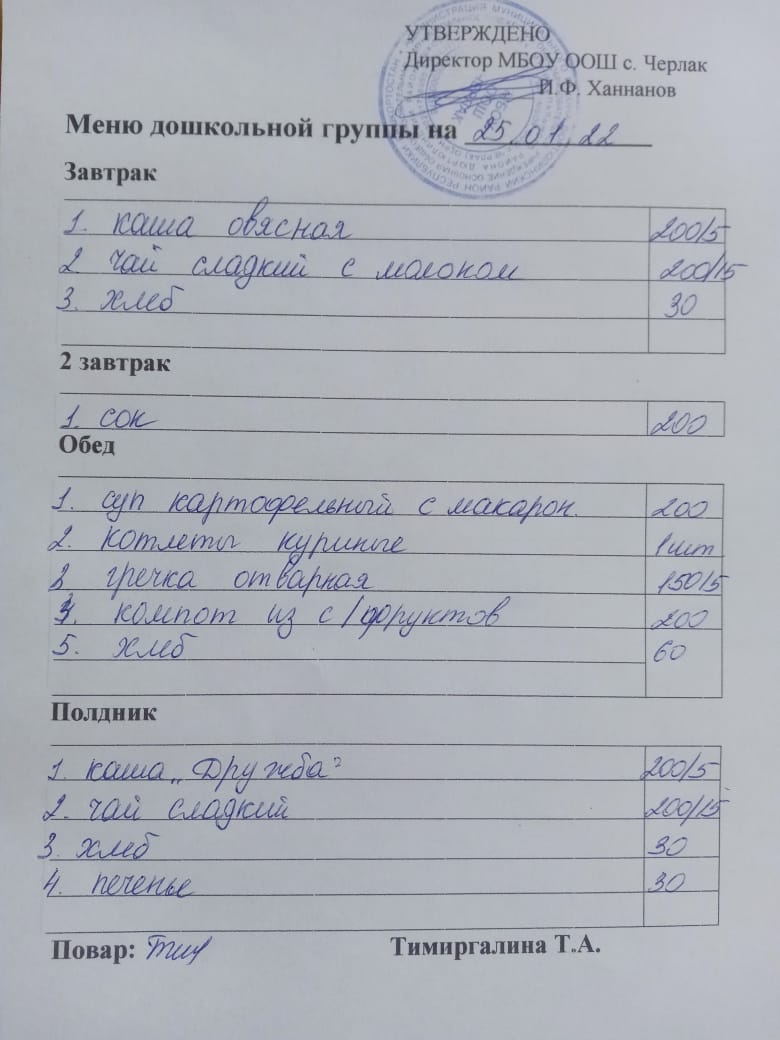 УТВЕРЖДЕНО
Директор МБОУ ООШ с. Черлак
И.Ф. Ханнанов
Меню дошкольной группы на 25/01,22
Завтрак
1. каша овясная 200/5
2 чай сладкий с молоком 200/15
3. хлеб 30
2 завтрак
1. сок 200
Обед
1. суп картофельный с макарон. 200
2. котлеты куриные 1шт
3 гречка отварная 150/5
4. компот из с/фруктов 200
5. хлеб 60
Полдник
1. каша „Дружба" 200/5
2. чай сладкий 200/15
3. хлеб 30
4. печенье 30
Повар: Тимиргалина Т.А.